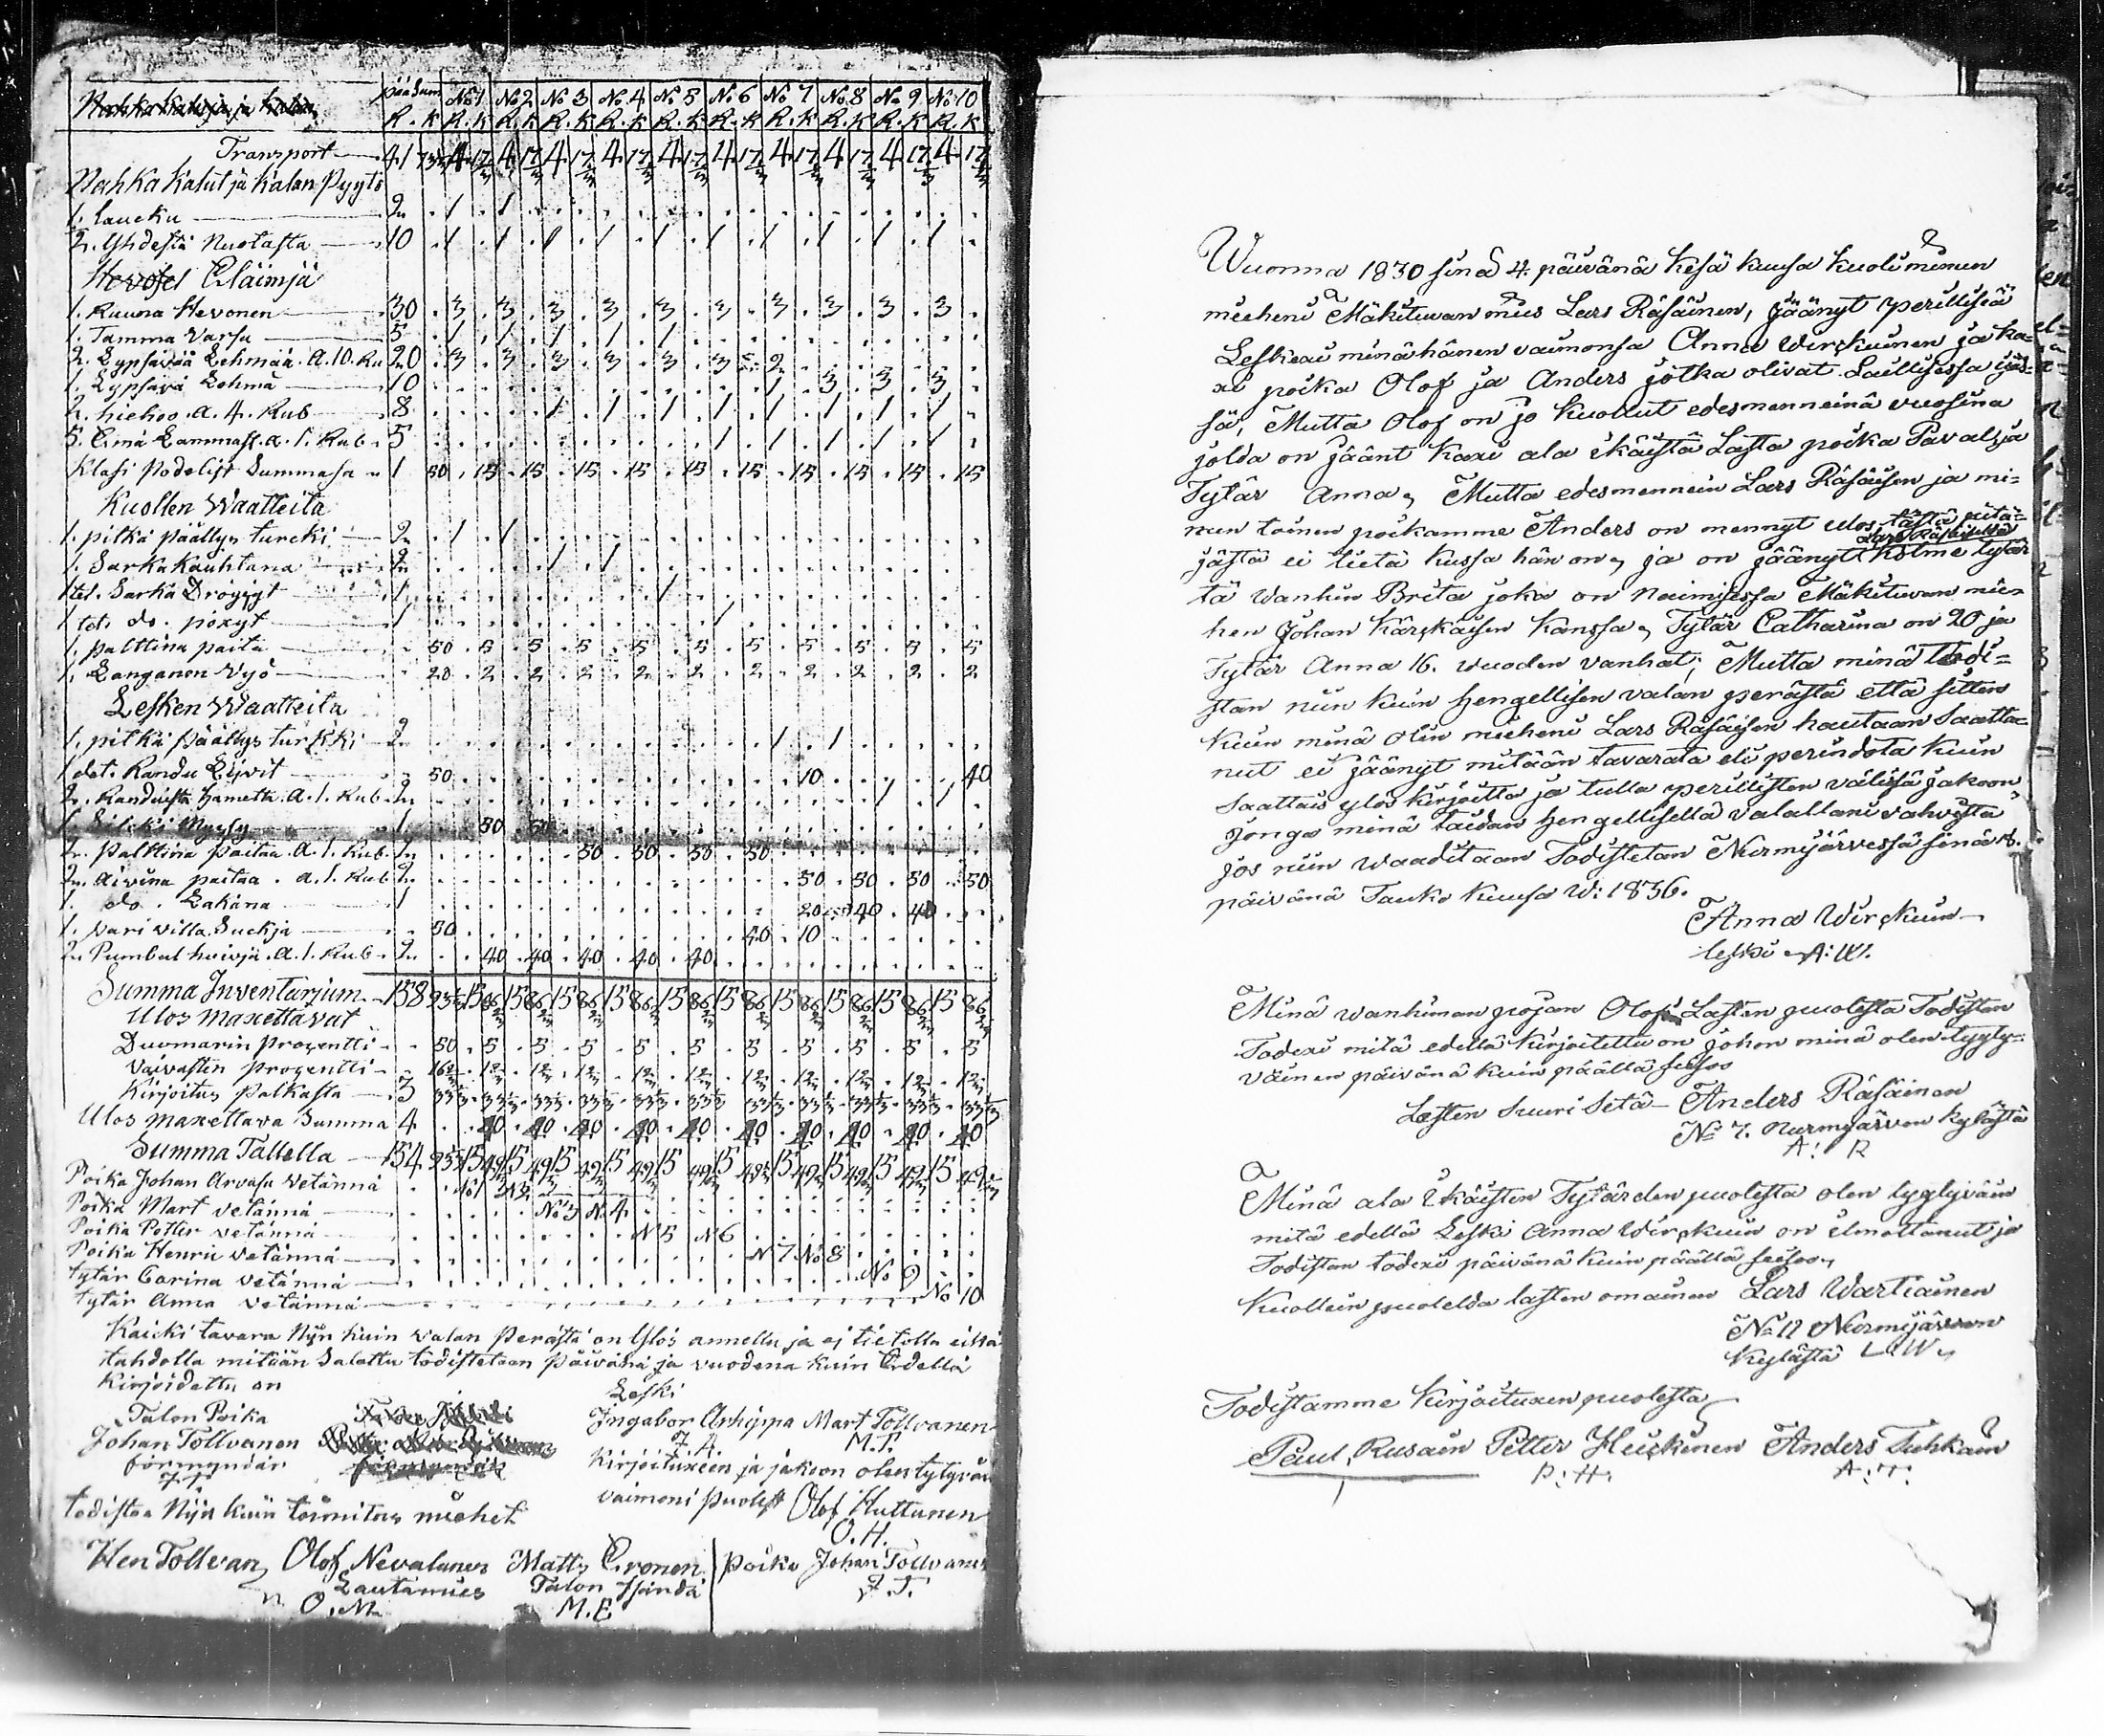 pääSum No 1 No 2 No 3 No 4 No 5 No 6 No 7 No 8 No 9 No 10
R. k R. k R. k R. k R. k R. k R. k R. k R. k R. k R. k
Transport 41 4 17 4 17 4 17 4 17 4 17 4 17 4 17 4 17 4 17 4 17
Nahka Kalut ja Kalan Pyytö
1. Laucku 2 . 1 . 1
2. Yhdestä Nuotasta 10 . 1 . 1 . 1 . 1 . 1 . 1 . 1 . 1 . 1 . 1
Eläimjä
1. Ruuna Hevonen 30 . 3 . 3 . 3 . 3 . 3 . 3 . 3 . 3 . 3 . 3
1. Tamma Varsa 5 . 1 . 1 . 1 . 1 . 1
2. Lypsävää Lehmää . a. 10. Ru 20 . 3 . 3 . 3 . 3 . 3 . 3 . 2
1. Lypsävä Lehmä 10 . 1 . 3 . 3 . 3
2. hiehoo . a. 4. Rub 8 . 1 . 1 . 1 . 1 . 1 . 1 . 1 . 1
5. Emä Lammast. a. 1. Rub. 5 . 1 . 1 . 1 . 1 . 1
Klasi Podelist Summasa 1 50 . 15 . 15 . 15 . 15 . 15 . 15 . 15 . 15 . 15 . 15
Kuollen Waatteita
1. pitkä päällys turcki 2 . 1 . 1
1. Sarka Kauhtana 2 . 1 . 1
1 tet. Sarka Dröyyyt 1 . 1
1 tet. do. pöxyt 1 . 1
1. palttina paita 50 . 5 . 5 . 5 . 5 . 5 . 5 . 5 . 5 . 5 . 5
1. Langanen Vyö 20 . 2 . 2 . 2 . 2 . 2 . 2 . 2 . 2 . 2 . 2
Lesken Waatteita
1. pitkä päällys turkki 2 . 1 . 1
1 det. Randu Lijvit 50 . 10 . 40
2. Randuista hametta. a. 1. Rub. 2 . 1 . 1
1. Silcki Myssy 1 . 50 . 50
2. palttina paitaa. a. 1. Rub. 2 . 50 . 50 . 50 . 50
2. aivina paitaa . a. 1. Rub 2 . 50 . 50 . 50 . 50
1. do. Lakana 1 . 20 . 40 . 40
1. pari villa Suckja 50 . 40 . 10
2. Pumbul huivja. a. 1. Rub. 2 . 40 . 40 . 40 . 40 . 40
Summa Inventarjum 158 15 86 15 86 15 86 15 86 15 86 15 86 15 86 15 86 15 86 15 86
Ulos maxettavat
Duomarin prozentti 50 . 5 . 5 . 5 . 5 . 5 . 5 . 5 . 5 . 5 . 5
Vaivasten prozentti
Kirjoitus Palkasta 3 33⅓ . 33⅓ . 33⅓ . 33⅓ . 33⅓ . 33⅓ . 33⅓ . 33⅓ . 33⅓ . 33⅓ . 33⅓
Ulos maxettava Summa 4 . 40 . 40 . 40 . 40 . 40 . 40 . 40 . 40 . 40 . 40
Summa Tallella 154 15 15 15 15 15 15 15 15 15 15
Poika Johan Arvasa Vetännä No 1 No 2
Poika Mart vetännä No 3 No 4
Poika Petter vetännä N 5 N 6
Poika Henric vetännä N 7 No 8
tytär Carina vetännä No 9
tytär Anna vetännä No 10
Kaicki tavara Nijn kuin valan Perästä on Ylös annettu ja ej tietolla eikä
tahdolla mitään Salattu todistetaan Päivänä ja vuodena kuin Edellä
kirjoidettu on
Talon Poika Leski
Johan Tollvanen Ingabor Arhippa Mart Tollvanen
förmyndär J. A. M. T.
J T Kirjoituxeen ja jakoon olen tytyväi
vaimoni Puolest Olof Huttunen
todistaa Nijn kuin toimitus miehet O. H.
Hen Tollvan Olof Nevalanen Matts Eronen poika Johan Tollvanen
Lautamies Talon Isändä J. T.
O. N. M. E
Wuonna 1830 sinä 4. päivänä Kesä kuusa kuoli minun
mieheni Mäkituvan mies Lars Räsäinen, jäänyt perillisiä
Leskexi minä hänen vaimonsa Anna Wirskuinen ja ka=
xi poika Olof ja Anders jotka olivat Laillisessa ijäs=
sä, Mutta Olof on jo kuollut edesmenneinä vuosina
jolda on jäänt kaxi ala ikäistä Lasta poika Paval, ja
Tytär Anna, Mutta edesmennein Lars Räsäisen ja mi=
nun toinen poikamme Anders on mennyt ulos tästä pitä=
Lars Räsäiseldä
jästä ei tietä kussa hän on, ja on jäänyt kolme tytär
tä wanhin Brita joka on Naimisessa Mäkituvan mie=
hen Johan Kärskäisen kanssa, Tytär Catharina on 20 ja
Tytär Anna 16. vuoden vanhat; Mutta minä todi=
stan niin kuin hengellisen valan perästä että sitten
kuin minä olin mieheni Lars Räsäisen hautaan saatta=
nut ei jäänyt mitään tavarata eli perindöta kuin
saattais ylös kirjoitta ja tulla perillisten välissä jakoon
jonga minä taidan hengellisellä valallani vahvista
jos niin waaditaan Todistetan Nurmijärvessä sinä 18.
päivänä Tauko kuusa W: 1836.
Anna Wirskuin
leski A: W.
Minä wanhiman pojan Olofin Lasten puolesta Todistan
Todexi mitä edellä kirjoitettu on johon minä olen tyyty=
väinen päivänä kuin päällä seisoo
Lasten Suuri Setä Anders Räsäinen
No 7. Nurmijärven kylästä
A: R
Minä ala ikäisten Tytärden puolesta olen tyytyväin
mitä edellä Leski Anna Wirskuin on ilmottanut ja
Todistan todexi päivänä kuin päällä seisoo,
kuollein puolelda lasten omainen Lars Wartiainen
No 12 Nurmijärven
kylästä L. W.
Todistamme kirjoituxen puolesta
Paul Rusain Petter Heiskinen Anders Tuhkain
P: H: A: T: